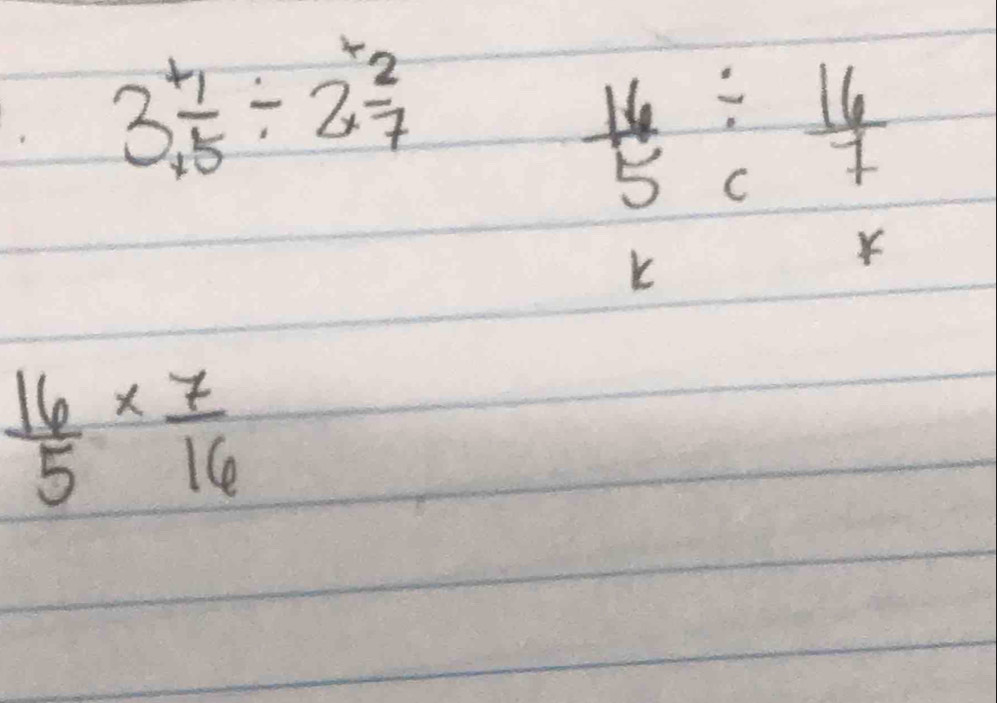 3 + 1/5 ÷ 2 + 2/7 16/5 ÷ 16/7
c
k k
16/5 × 7/16